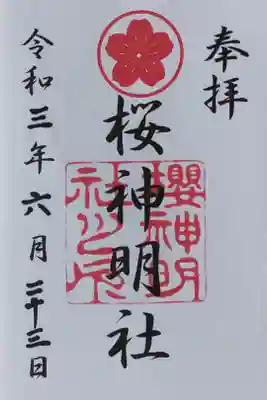 奉拝
桜神明社
櫻神明
社之印
令和三年六月二十三日